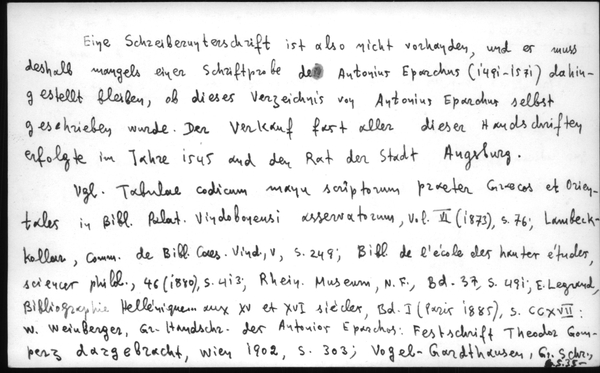 Eine Schreiberunterschrift ist also nicht vorhanden, und es muss
deshalb mangels einer Schriftprobe des Antonius Eparchus (1491-1571) dahin-
gestellt bleiben, ob dieses Verzeichnis von Antonius Eparchus selbst
geschrieben wurde. Der Verkauf fast aller dieser Handschriften
erfolgte im Jahre 1545 and den Rat der Stadt Augsburg.
Vgl. Tabulae codicum manu scriptorum praeter Graecos et Orien-
tales in Bibl. Palat. Vindobonensi asservatorum, Vol. VI (1873), S. 76; Lambeck-
Kollar, Comm. de Bibl. Caes. Vind, V, S. 249; Bibl. de l'école des hautes études,
sciences philol., 46 (1880), S. 413; Rhein. Museum, N.F., Bd. 37, S. 491; E. Legrand,
Bibliographie Hellénique... aux XV et XVI siècles, Bd. I (Paris 1885), S. CCXVII:
W. Weinberger, Gr. Handschr. des Antonios Eparchos: Festschrift Theodor Gom-
perz dargebracht, Wien 1902, S. 303; Vogel-Gardthausen, Gr. Schr.,
S. 35-